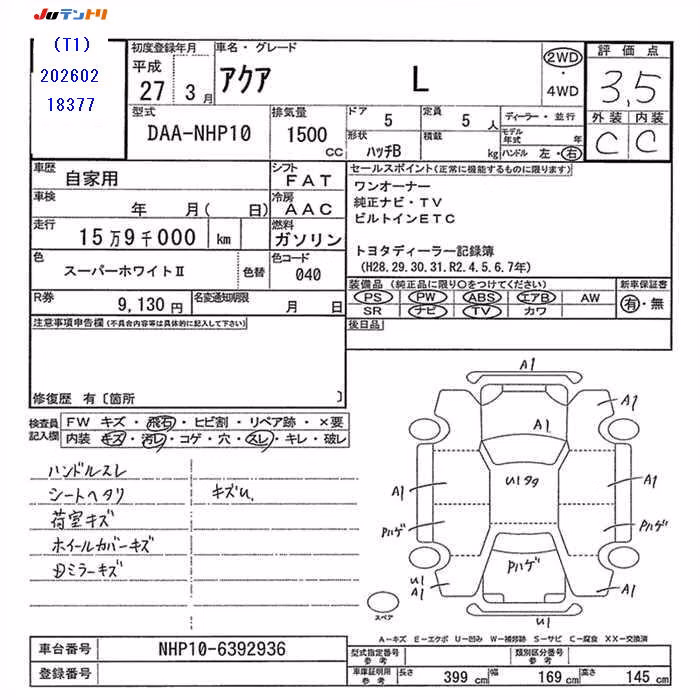 JUテントリ
(T1)
202602
18377
初度登録年月
平成
27 3月
車名・グレード
アクア L
2WD
・
4WD
評価点
3.5
外装 内装
C C
型式
DAA-NHP10
排気量
1500
CC
ドア
5
定員
5 人
形状
ハッチB
積載
kg
ディーラー・並行
モデル年式 年
ハンドル 左・右
車歴
自家用
シフト
FAT
車検
年 月( 日)
冷房
AAC
走行
15万9千000 km
燃料
ガソリン
色
スーパーホワイトⅡ
色替
色コード
040
R券
9,130円
名変通知期限
月 日
セールスポイント(正常に機能するものに限ります)
ワンオーナー
純正ナビ・TV
ビルトインETC
トヨタディーラー記録簿
(H28.29.30.31.R2.4.5.6.7年)
装備品(純正品に限り〇をつけてください)
PS PW ABS エアB AW
SR ナビ TV カワ
新車保証書
有・無
後日品
注意事項申告欄(不具合内容等は具体的に記入して下さい)
修復歴 有〔箇所 〕
検査員
記入欄
FW キズ・飛石・ヒビ割・リペア跡・×要
内装 キズ・汚レ・コゲ・穴・スレ・キレ・破レ
ハンドルスレ
シートヘタリ キズU.
荷室キズ
ホイールカバーキズ
ミラーキズ
A1
A1
A1
A1
U199
A1
A1
Pハゲ
Pハゲ
Pハゲ
U1
A1
A1
U1
スペア
A-キズ E-エクボ U-凹み W-補修跡 S-サビ C-腐食 XX-交換済
車台番号
NHP10-6392936
登録番号
型式指定番号
参考
類別区分番号
参考
車庫証明用
参考
長さ 399 cm 幅 169 cm 高さ 145 cm